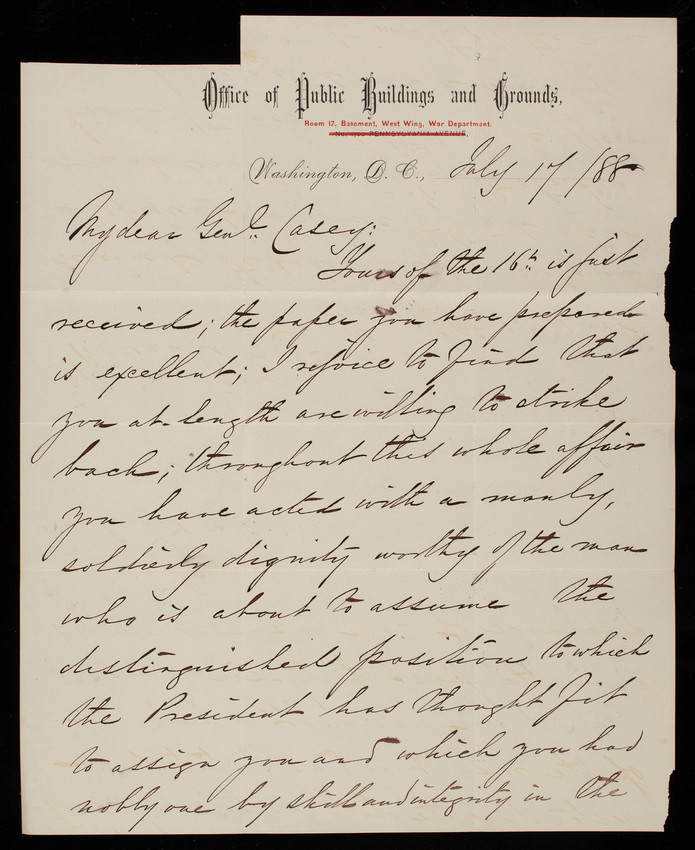 Office of Public Buildings and Grounds,
Room 17, Basement, West Wing, War Department,
No. 1700 PENNSYLVANIA AVENUE,
Washington, D. C., July 17/88
My dear Genl. Casey:
Yours of the 16th is just
received; the paper you have prepared
is excellent; I rejoice to find that
you at length are willing to strike
back; throughout this whole affair
you have acted with a manly,
soldierly dignity worthy of the man
who is about to assume the
distinguished position to which
the President has thought fit
to assign you and which you had
nobly one by skill and integrity in the